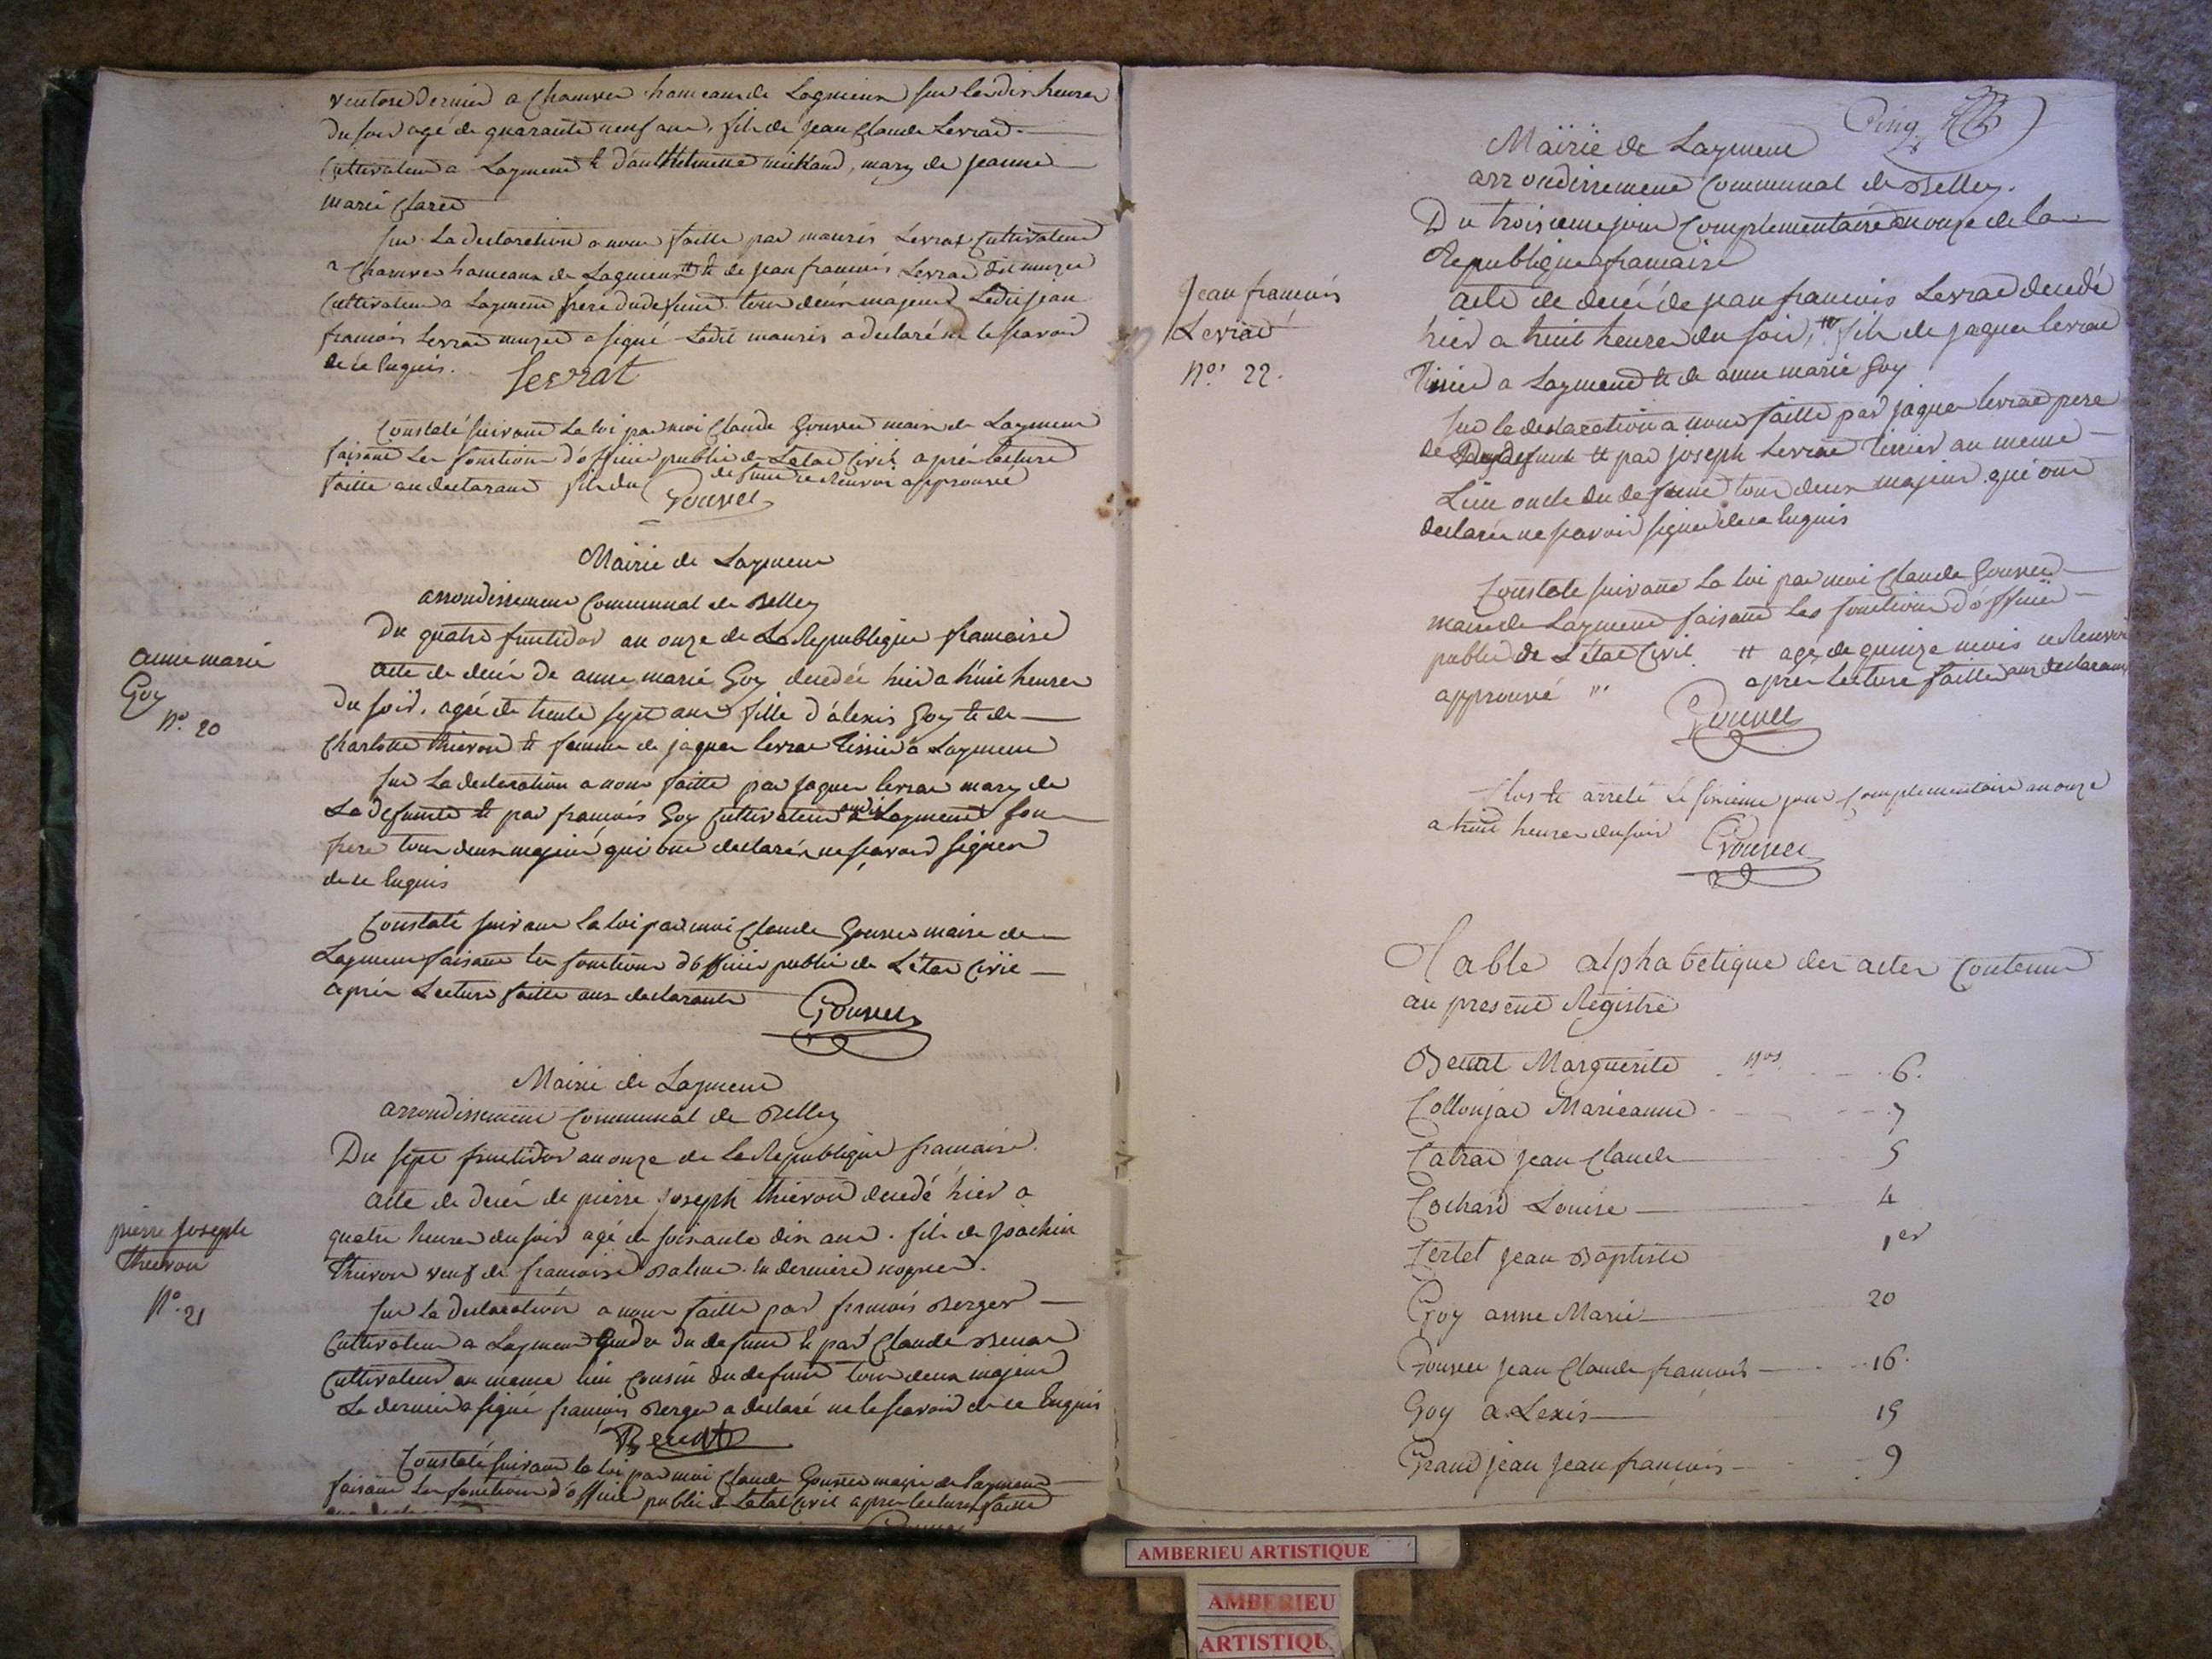 ventose dernier a Chamves hameau de Lagnieux sur les dix heures
du soir agé de quarante neuf ans, fils de jean Claude Levrat
Cultivateur a Laymene et d'anthelmette michaud, mary de jeanne
marie Claret
Sur la declaration a nous faitte par mauris Levrat Cultivateur
a Chamves hameaux de Lagnieux et de jean francois Levrat dit muzet
Cultivateur a Laymene frere du defunt tous deux majeurs Ledit jean
francois Levrat muzet a signé Ledit mauris a declaré ne le scavoir
de ce enquis. Levrat
Constaté suivant La loi par moi Claude Gouvee maire de Laymene
faisant Les fonctions d'officier public de Letat Civil après lecture
faitte au declarant fils du defunt ce Renvoi approuvé
Gouvee
Mairie de Laymene
arrondissement Communal de Belley
anne marie
Goy
No. 20
Du quatre fructidor an onze de La Republique francaise
Acte de decés de anne marie Goy decedée hier a huit heures
du soir, agée de trente sept ans fille d'alexis Goy et de
Charlotte thievon et femme de jaques levrat tissier a Laymene
Sur La declaration a nous faitte par jaques levrat mary de
La defunte et par francois Goy Cultivateur audit Laymene son
frere tous deux majeurs qui ont declarés ne scavoir signer
de ce enquis
Constaté suivant la loi par moi Claude Gouvee maire de
Laymene faisant les fonctions d'officier public de L'etat Civil
après Lecture faitte aux declarants
Gouvee
Mairie de Laymene
arrondissement Communal de Belley
pierre Joseph
thievon
No. 21
Du sept fructidor an onze de La Republique francaise.
Acte de decés de pierre joseph thievon decedé hier a
quatre heures du soir agé de soixante dix ans. fils de joachin
thievon veuf de francoise Balme en derniere nopces.
Sur La declaration a nous faitte par francois Berger
Cultivateur a Laymene gendre du defunt et par Claude Benat
Cultivateur au meme lieu Cousin du defunt tous deux majeurs
Le dernier a signé francois Berger a declaré ne le scavoir de ce enquis
Benat
Constaté suivant la loi par moi Claude Gouvee maire de laymene
faisant Les fonctions d'officier public de Letat Civil apres lecture faitte
Cinq
Maïrie de Laymene
arrondissement Communal de Belley.
Du troisieme jour Complementaire an onze de la
Republique francaise
Jean francois
Levrat
No. 22.
Acte de decés de jean francois Levrat decedé
hier a huit heures du soir, fils de jaques levrat
tissier a Laymene et de anne marie Goy
Sur la declaration a nous faitte par jaques levrat pere
du defunt et par joseph Levrat tissier au meme
Lieu oncle du defunt tous deux majeurs qui ont
declarés ne scavoir signer de ce enquis
Constaté suivant La loi par moi Claude Gouvee
maire de Laymene faisant Les fonctions d'officier
public de L'etat Civil. agé de quinze mois ce Renvoi
approuvé après lecture faitte aux declarants
Gouvee
Clos et arreté le sixieme jour Complementaire an onze
a huit heures du soir Gouvee
Table alphabetique des actes Contenus
au present Registre
Benat Marguerite Nos. 6.
Collonjat Marieanne 7
Catrat jean Claude 5
Cochard Louise 4
Ferlet jean Baptiste 1er
Goy anne Marie 20
Gouvee jean Claude francois 16.
Goy aLexis 15
Grand jean jean francois 9
AMBERIEU ARTISTIQUE
AMBERIEU
ARTISTIQU